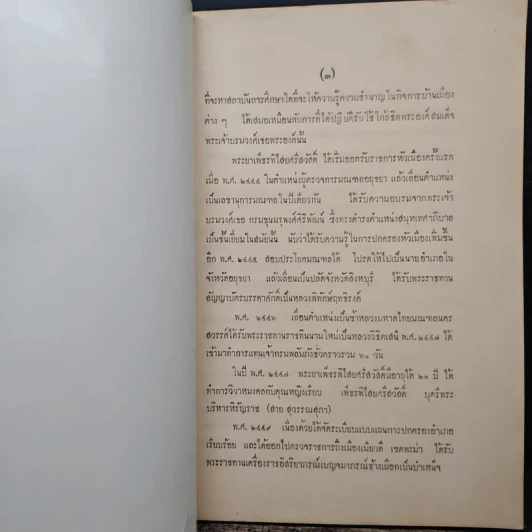 (๓)
ที่จะหาสถาบันการศึกษาใดที่จะให้ความรู้ความชำนาญในกิจการบ้านเมือง
ต่าง ๆ ได้เสมอเหมือนกับการที่ได้ปฏิบัติรับใช้ใกล้ชิดพระองค์สมเด็จ
พระเจ้าบรมวงศ์เธอพระองค์นั้น
พระยาเพ็ชรพิสัยศรีสวัสดิ์ ได้เริ่มออกรับราชการหัวเมืองครั้งแรก
เมื่อ พ.ศ. ๒๔๔๔ ในตำแหน่งผู้ตรวจการมณฑลอยุธยา แล้วเลื่อนตำแหน่ง
เป็นเลขานุการมณฑลในปีเดียวกัน ได้รับความอบรมจากพระเจ้า
บรมวงศ์เธอ กรมขุนมรุพงศ์ศิริพัฒน์ ซึ่งทรงดำรงตำแหน่งสมุหเทศาภิบาล
เป็นชั้นเยี่ยมในสมัยนั้น นับว่าได้รับความรู้ในการปกครองหัวเมืองเพิ่มขึ้น
อีก พ.ศ. ๒๔๔๕ สอบประโยคมณฑลได้ โปรดให้ไปเป็นนายอำเภอใน
จังหวัดอยุธยา แล้วเลื่อนเป็นปลัดจังหวัดสิงหบุรี ได้รับพระราชทาน
สัญญาบัตรบรรดาศักดิ์เป็นหลวงพิทักษ์ฤทธิรงค์
พ.ศ. ๒๔๔๖ เลื่อนตำแหน่งเป็นข้าหลวงมหาดไทยมณฑลนคร
สวรรค์ได้รับพระราชทานราชทินนามใหม่เป็นหลวงวิชิตเสนี พ.ศ. ๒๔๔๗ ได้
เข้ามาทำการแทนเจ้ากรมพลัมภังชั่วคราวรวม ๖๐ วัน
ในปี พ.ศ. ๒๔๔๗ พระยาเพ็ชรพิสัยศรีสวัสดิ์มีอายุได้ ๒๓ ปี ได้
ทำการวิวาหมงคลกับคุณหญิงเรียบ เพ็ชรพิสัยศรีสวัสดิ์ บุตรีพระ
บริหารหิรัญราช (สาย สุวรรณสุภา)
พ.ศ. ๒๔๔๙ เนื่องด้วยได้จัดระเบียบแบบแผนการปกครองอำเภอ
เรียบร้อย และได้ออกไปตรวจราชการถึงเมืองเมียวดี เขตพะม่า ได้รับ
พระราชทานเครื่องราชอิสริยาภรณ์เบญจมาภรณ์ช้างเผือกเป็นบำเหน็จ